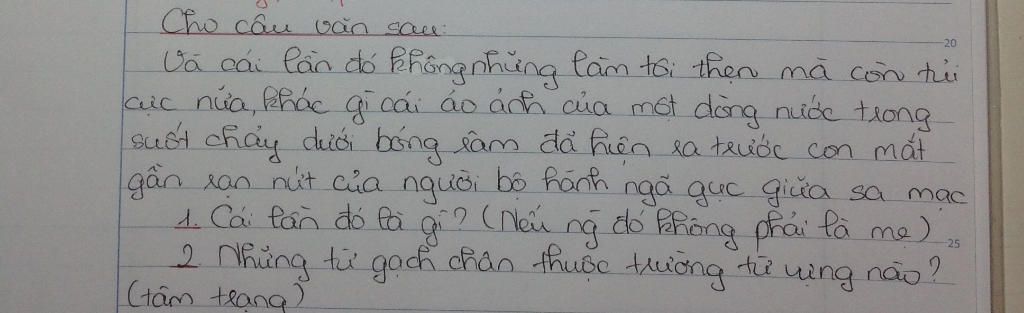 Cho câu văn sau:
20
Và cái lần đó không những làm tôi thẹn mà còn tủi
cực nữa, khác gì cái ảo ảnh của một dòng nước trong
suốt chảy dưới bóng râm đã hiện ra trước con mắt
gần rạn nứt của người bộ hành ngã gục giữa sa mạc
1. Cái lần đó là gì? (Nếu ng đó không phải là mẹ)
25
2. Những từ gạch chân thuộc trường từ vựng nào?
(tâm trạng)